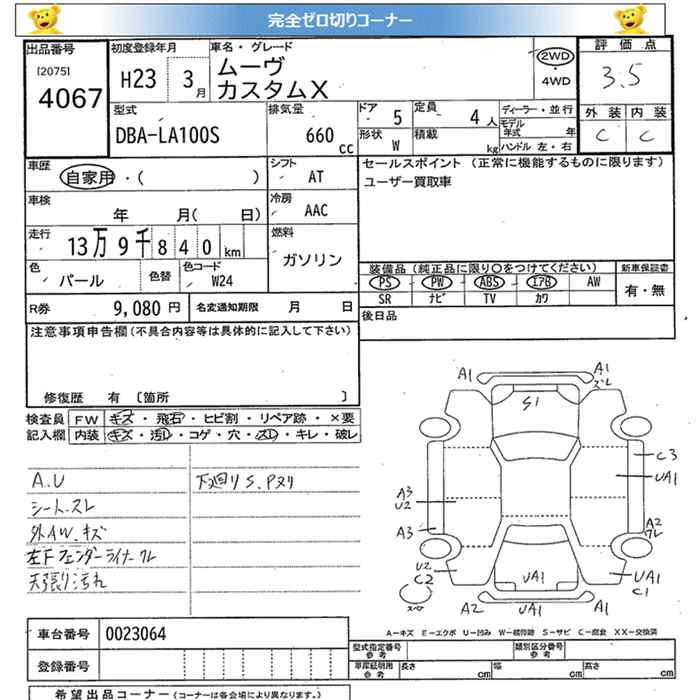 完全ゼロ切りコーナー
出品番号 初度登録年月 車名・グレード 評価点
[2075] 4067 H23 3月 ムーヴ カスタムX 2WD・4WD 3.5
外装 内装
C C
型式 排気量 ドア 5 定員 4人 ディーラー・並行
DBA-LA100S 660cc 形状 W 積載 kg モデル年式 年
ハンドル 左・右
車歴 自家用・( ) シフト AT セールスポイント (正常に機能するものに限ります)
ユーザー買取車
車検 年 月( 日) 冷房 AAC
走行 13万9千840km 燃料 ガソリン
色 パール 色替 色コード W24
装備品 (純正品に限り○をつけてください) 新車保証書
PS PW ABS エアB AW 有・無
SR ナビ TV カワ
R券 9,080円 名変通知期限 月 日 後日品
注意事項申告欄(不具合内容等は具体的に記入して下さい)
修復歴 有 [箇所 ]
検査員 FW キズ・飛石・ヒビ割・リペア跡・×要
記入欄 内装 キズ・汚レ・コゲ・穴・スレ・キレ・破レ
A.U 下廻りS.Pヌリ
シートスレ
外AW.キズ
左Fフェンダーライナーワレ
天張り汚れ
A1 A1
ズレ
S1
C3
UA1
A3
U2
A3
A2
ワレ
U2
C2
UA1
UA1
C1
スペア
A2 UA1 A1
A−キズ E−エクボ U−凹み W−補修跡 S−サビ C−腐食 XX−交換済
車台番号 0023064
登録番号
型式指定番号 参考 類別区分番号 参考
車庫証明用 参考 長さ cm 幅 cm 高さ cm
希望出品コーナー (コーナーは各会場により異なります。)